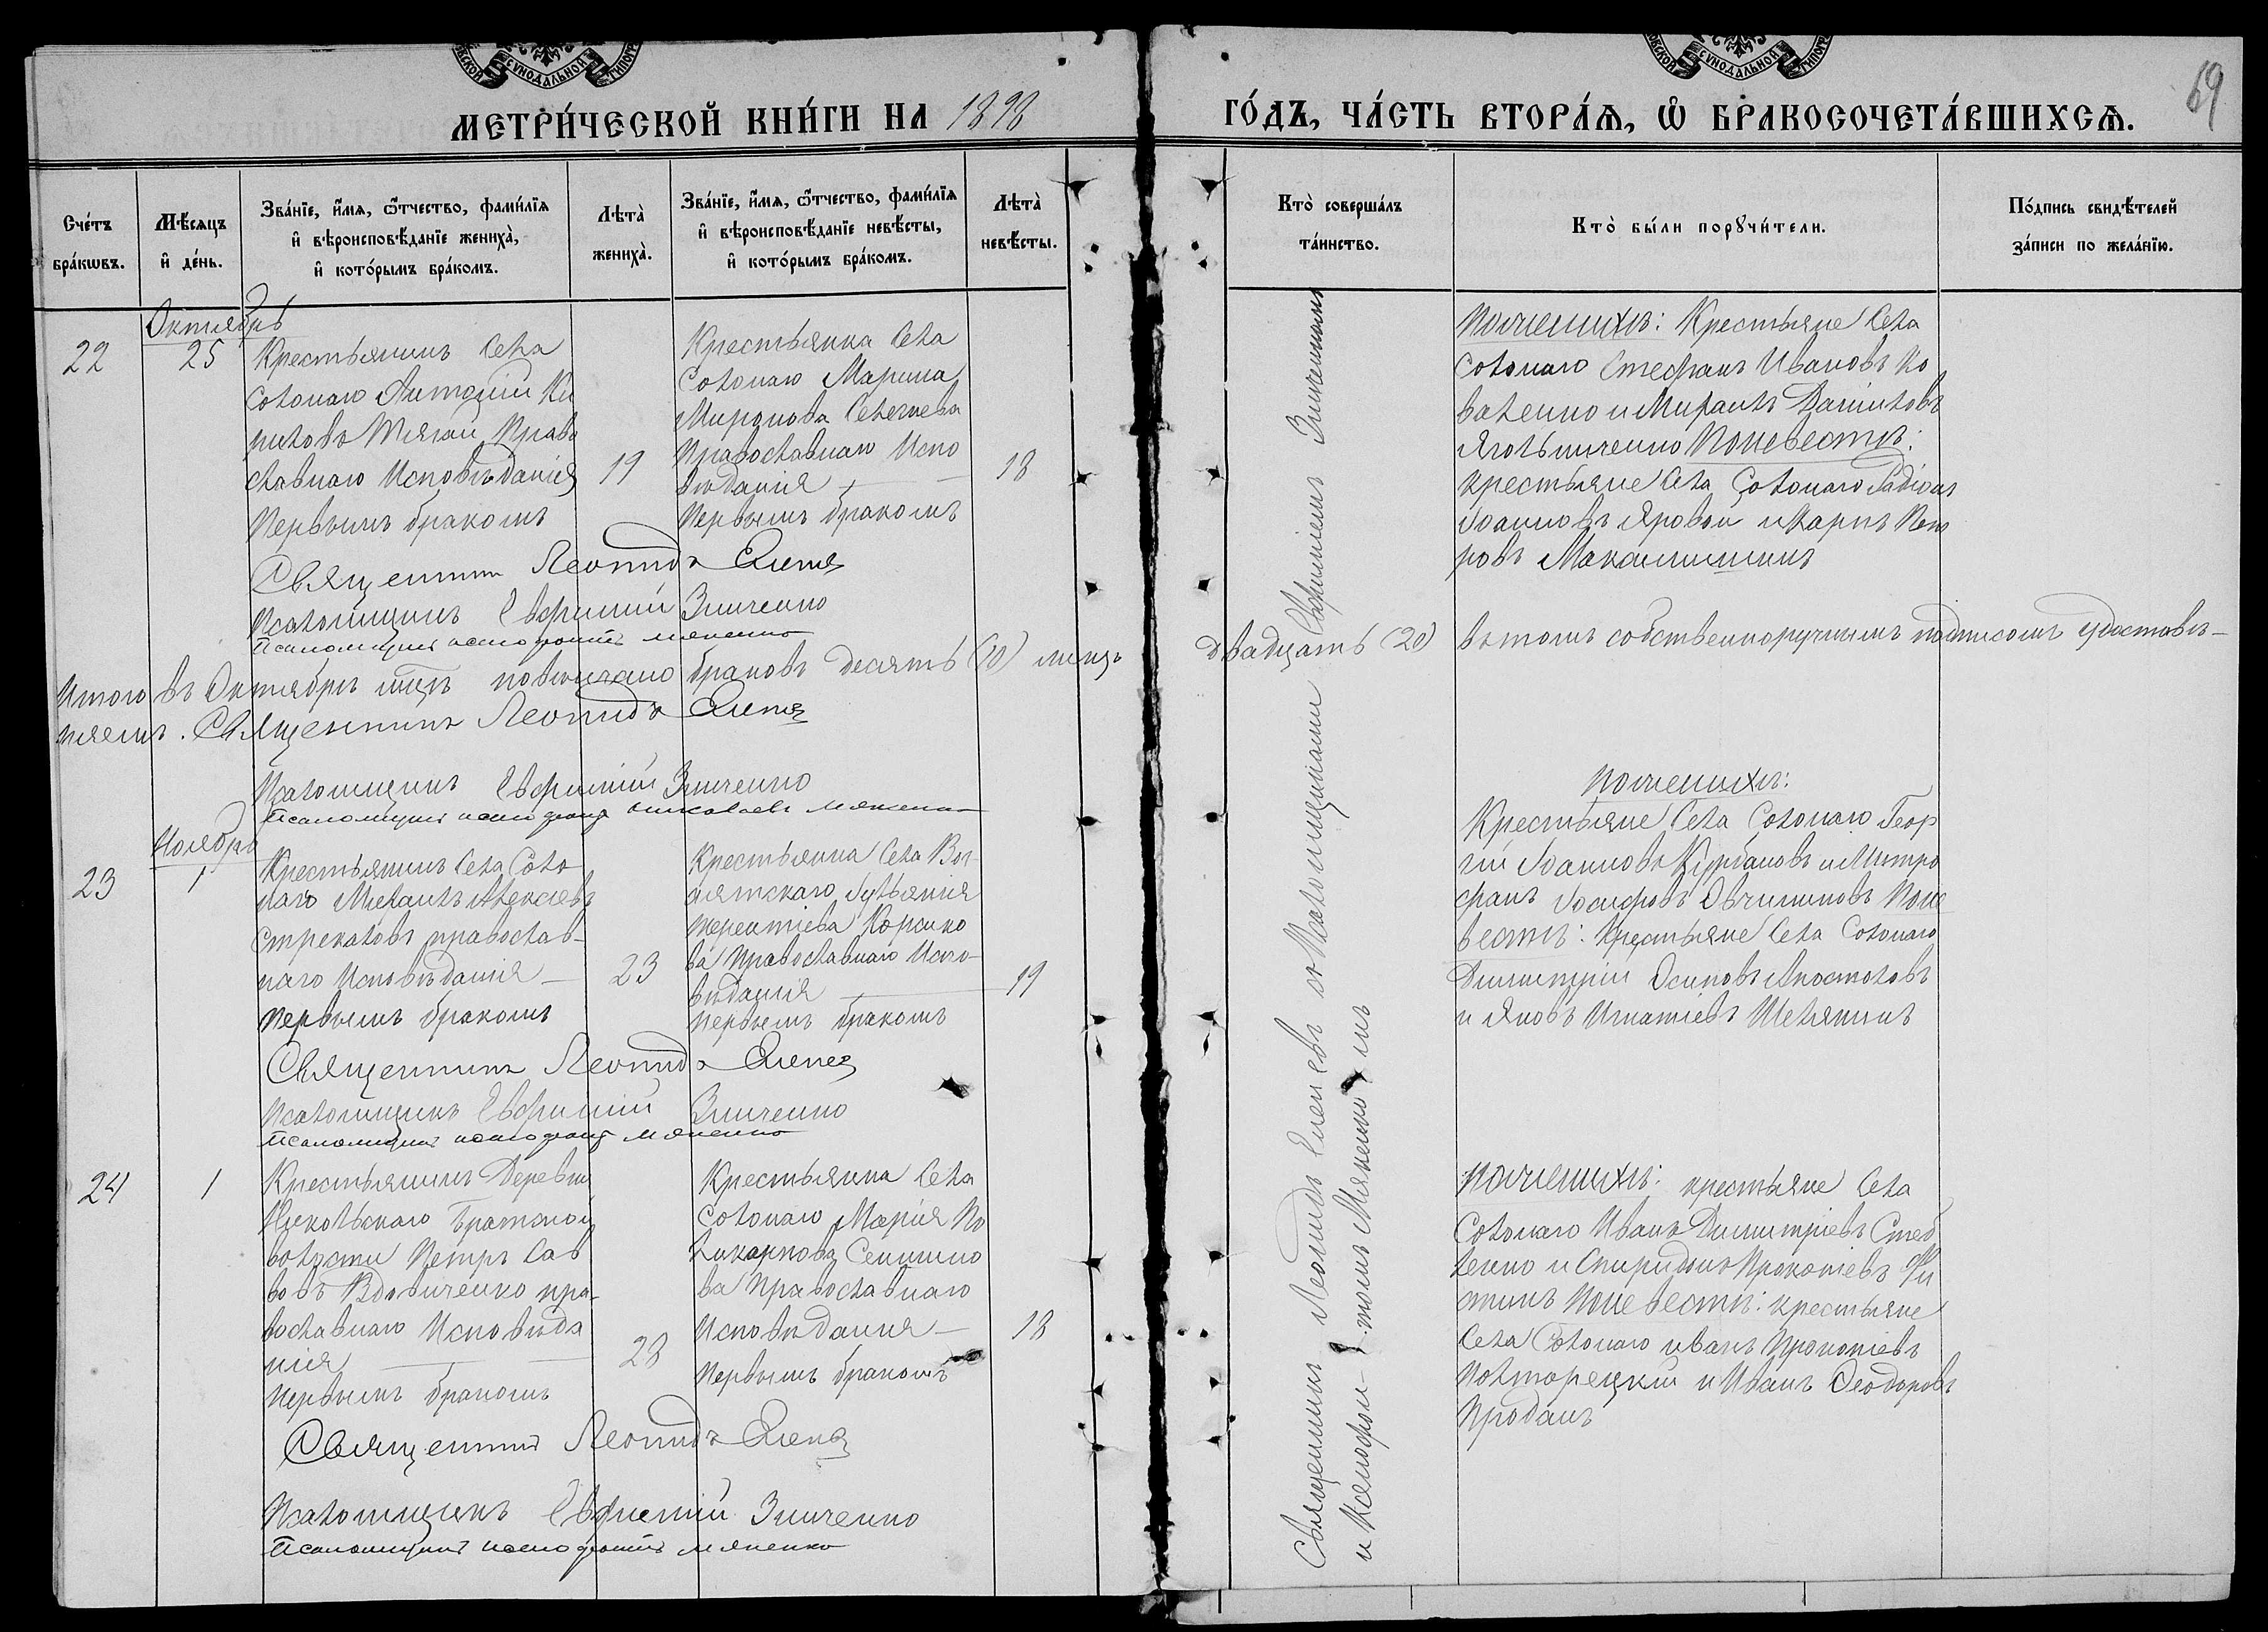 МЕТРИ́ЧЕСКОЙ КНИ́ГИ НА 1898
ГО́ДЪ, ЧА́СТЬ ВТОРА́Ѧ, Ѽ БРАКОСОЧЕТА́ВШИХСѦ.
69
Сче́тъ бра́кѡвъ.
Мѣ́сяцъ и҆ де́нь.
Зва́нїе, и҆́мѧ, ѻ҆́тчество, фами́лїѧ
и҆ вѣроисповѣ́данїе жениха̀,
и҆ кото́рымъ бра́комъ.
Лѣта̀ жениха̀.
Зва́нїе, и҆́мѧ, ѻ҆́тчество, фами́лїѧ
и҆ вѣроисповѣ́данїе невѣ́сты,
и҆ кото́рымъ бра́комъ.
Лѣта̀ невѣ́сты.
Кто̀ соверша́лъ
та́инство.
Кто̀ бы́ли порꙋчи́тели.
По́дпись свидѣ́телей
за́писи по жела́нїю.
Октябрь
22
25
Крестьянинъ Села
Солонаго Антоній Ки
риловъ Тягай Право
славнаго Исповѣданія
Первымъ бракомъ
19
Крестьянка Села
Солонаго Марина
Миронова
Православнаго Испо
вѣданія
Первымъ бракомъ
18
По женихѣ: Крестьяне Села
Солонаго Стефанъ Ивановъ Ко
валенко и Михаилъ Даніиловъ
Ягольниченко По невестѣ:
крестьяне Села Солонаго Родіонъ
Іоанновъ Яровой и Карпъ Пет
ровъ
Священникъ Леонидъ
Псаломщикъ Евфимій Зинченко
Псаломщикъ Ксенофонтъ Мякенко
Итого въ Октябрѣ мцѣ повѣнчано браковъ десять (10) лицъ двадцать (20) въ томъ собственноручнымъ подписомъ удостовѣ-
ряемъ. Священникъ Леонидъ
Псаломщикъ Евфимій Зинченко
Псаломщикъ Ксенофонтъ Николаевъ Мякенко
Ноябрь
23
1
Крестьянинъ Села Соло
наго Михаилъ Алексѣевъ
Стрекаловъ православ-
наго Исповѣданія
первымъ бракомъ
23
Крестьянка Села
Терентіева
ва Православнаго Испо-
вѣданія
первымъ бракомъ
19
По женихѣ:
Крестьяне Села Солонаго Геор
гій Іоанновъ Курбановъ и Митро
фанъ Іосифовъ Овчинниковъ По не
вестѣ: Крестьяне Села Солонаго
Димитрій Осиповъ Апостоловъ
и Яковъ Игнатіевъ
Священникъ Леонидъ
Псаломщикъ Евфимій Зинченко
Псаломщикъ Ксенофонтъ Мякенко
24
1
Крестьянинъ Деревни
Никольскаго Братской
волости Петръ Сав
вовъ Вдовиченко пра-
вославнаго Исповѣда
нія
первымъ бракомъ
28
Крестьянка Села
Солонаго Марія По
ликарпова
ва Православнаго
Исповѣданія
первымъ бракомъ
18
По женихѣ: крестьяне Села
Солонаго Иванъ Димитріевъ Стеб
ленко и Спиридонъ Прокопіевъ
По невестѣ: крестьяне
Села Солонаго Иванъ Прокопіевъ
Полторецкій и Иванъ Ѳеодоровъ
Проданъ
Священникъ Леонидъ
Псаломщикъ Евфимій Зинченко
Псаломщикъ Ксенофонтъ Мякенко
Священникъ Леонидъ со Псаломщиками Евфиміемъ Зинченкомъ
и Ксенофон-томъ Мякенкомъ